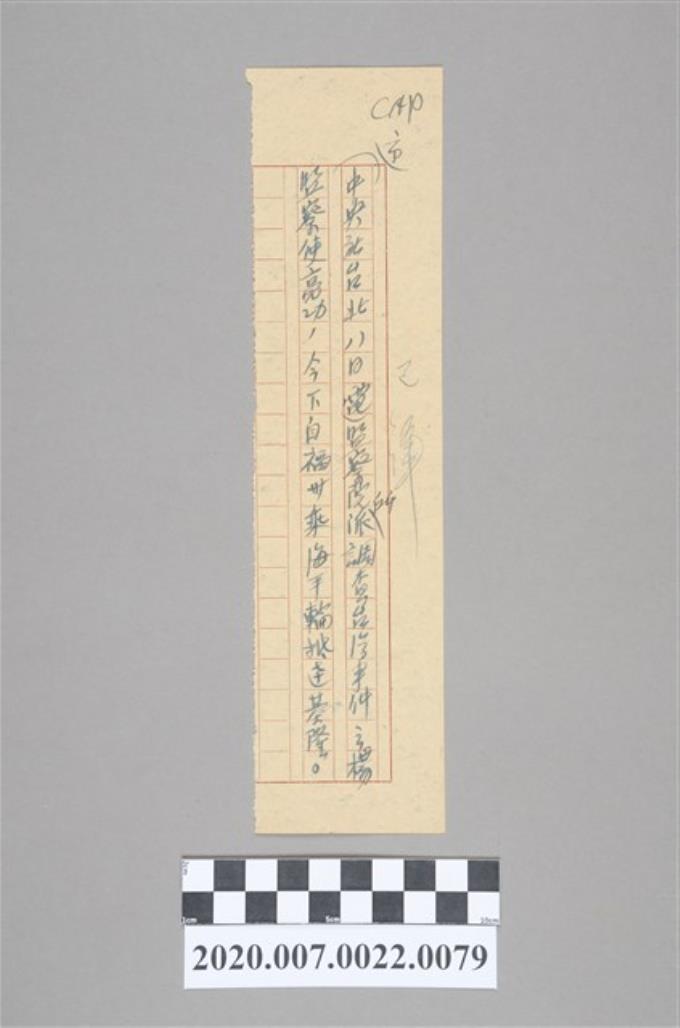 CAP
(中央社台北八日電)監察院所派調查台湾事件之楊
監察使亮功，今下自福州乘海平輪抵達基隆。
1cm 5cm 10cm
2020.007.0022.0079